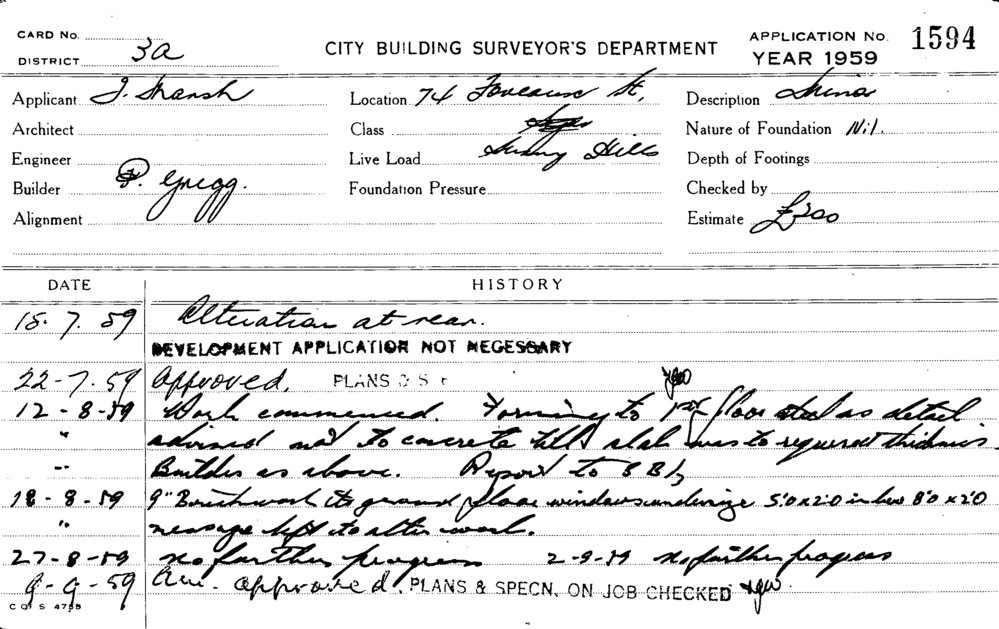 CARD No.
DISTRICT 3a
CITY BUILDING SURVEYOR'S DEPARTMENT
APPLICATION No. 1594
YEAR 1959
Applicant J. Sharsh
Location 74 Foveaux St,
Description Minor
Architect
Class
Nature of Foundation Nil.
Engineer
Live Load Surry Hills
Depth of Footings
Builder P. Gregg.
Foundation Pressure
Checked by
Alignment
Estimate £200
DATE HISTORY
15.7.59 Alteration at rear.
DEVELOPMENT APPLICATION NOT NECESSARY
22-7.59 Approved. PLANS
12-8-59 Work commenced. Forming to 1st floor steel as detail
" advised not to concrete till slab was to required thickness
" Builder as above. Report to
18-8-59 9" Brickwork to ground floor windows undersize 5'0 x 2'0 in lieu 8'0 x 2'0
" message left to alter work.
27-8-59 No further progress 2-9-59 No further progress
9-9-59 Am. approved. PLANS & SPECN. ON JOB CHECKED
C OF S 4755